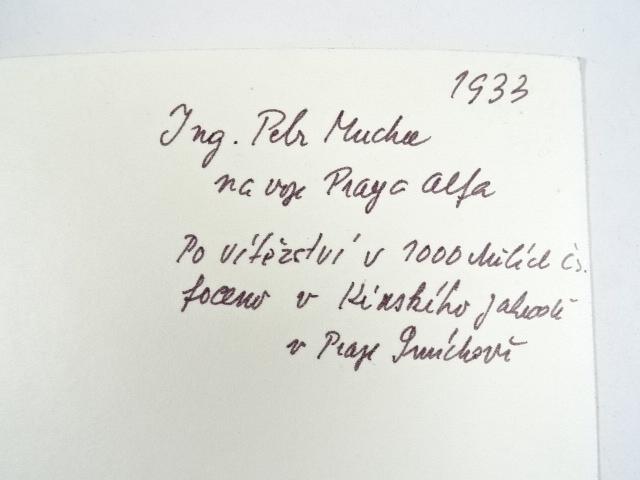 1933
Ing. Petr Mucha
na voze Praga Alfa
Po vítězství v 1000 Mílích čs.
foceno v Kinského zahradě
v Praze Smíchově